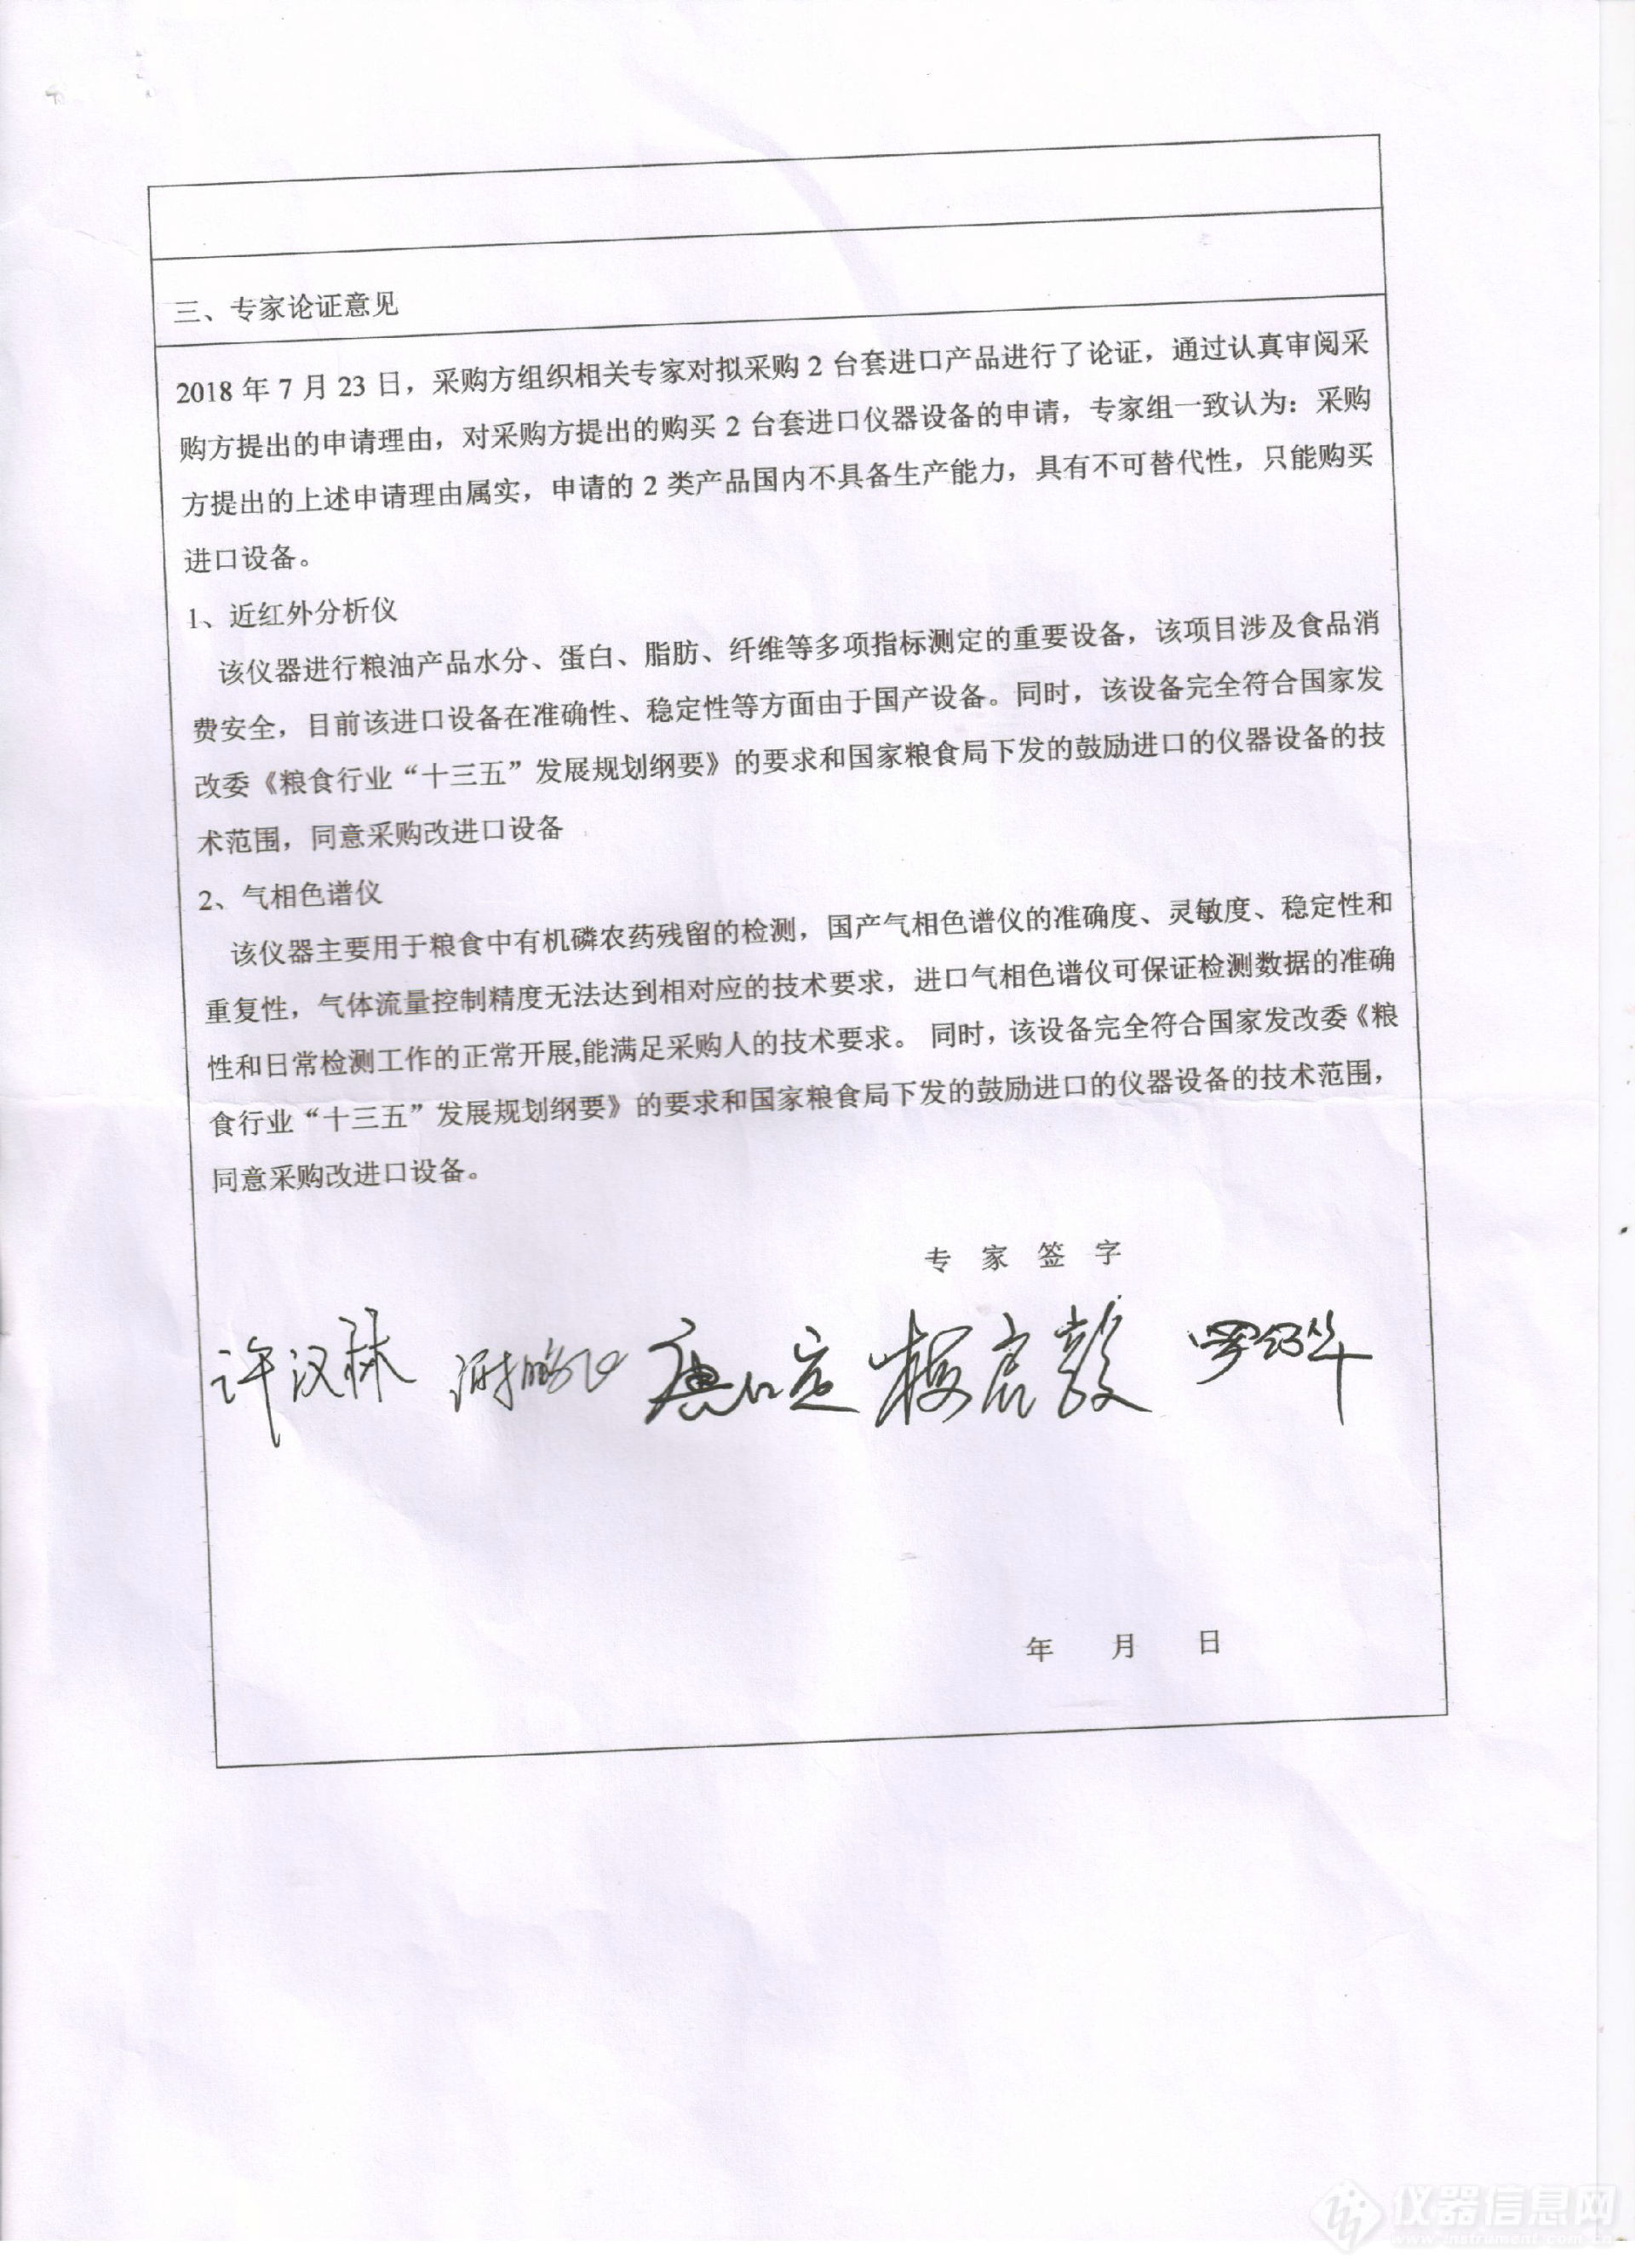 三、专家论证意见
2018 年 7 月 23 日，采购方组织相关专家对拟采购 2 台套进口产品进行了论证，通过认真审阅采
购方提出的申请理由，对采购方提出的购买 2 台套进口仪器设备的申请，专家组一致认为：采购
方提出的上述申请理由属实，申请的 2 类产品国内不具备生产能力，具有不可替代性，只能购买
进口设备。
1、近红外分析仪
该仪器进行粮油产品水分、蛋白、脂肪、纤维等多项指标测定的重要设备，该项目涉及食品消
费安全，目前该进口设备在准确性、稳定性等方面由于国产设备。同时，该设备完全符合国家发
改委《粮食行业“十三五”发展规划纲要》的要求和国家粮食局下发的鼓励进口的仪器设备的技
术范围，同意采购改进口设备
2、气相色谱仪
该仪器主要用于粮食中有机磷农药残留的检测，国产气相色谱仪的准确度、灵敏度、稳定性和
重复性，气体流量控制精度无法达到相对应的技术要求，进口气相色谱仪可保证检测数据的准确
性和日常检测工作的正常开展,能满足采购人的技术要求。 同时，该设备完全符合国家发改委《粮
食行业“十三五”发展规划纲要》的要求和国家粮食局下发的鼓励进口的仪器设备的技术范围，
同意采购改进口设备。
专 家 签 字
许汉林
年 月 日
仪器信息网
www.instrument.com.cn